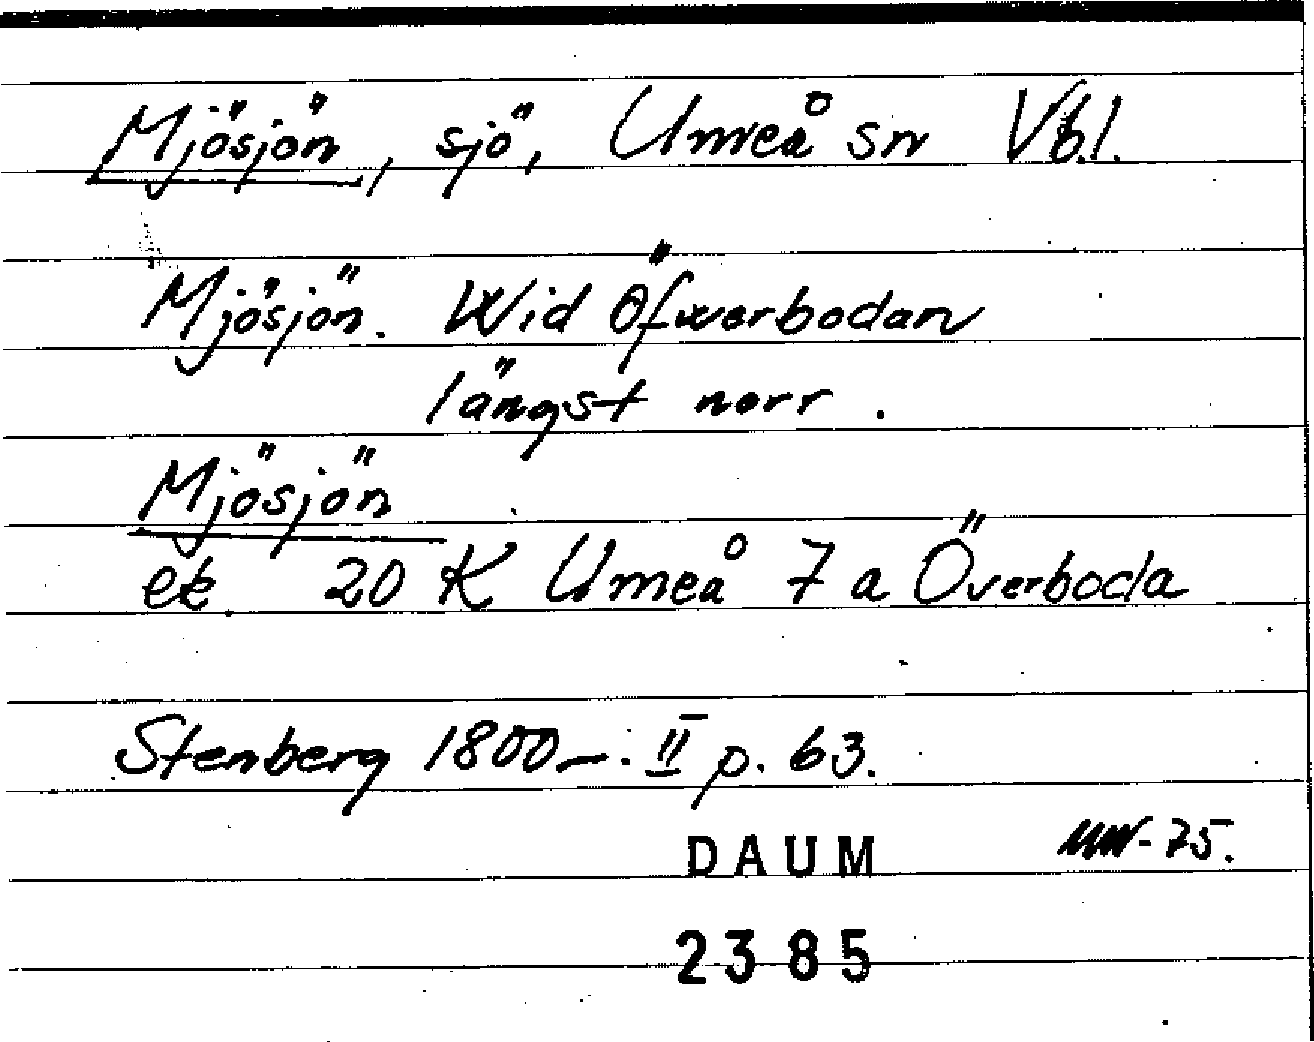 Mjösjön, sjö, Umeå sn Vb.l.
Mjösjön. Wid Öfwerbodan
längst norr.
Mjösjön
ek. 20 K Umeå 7 a Överboda
Stenberg 1800-. II p. 63.
DAUM
-75.
2385